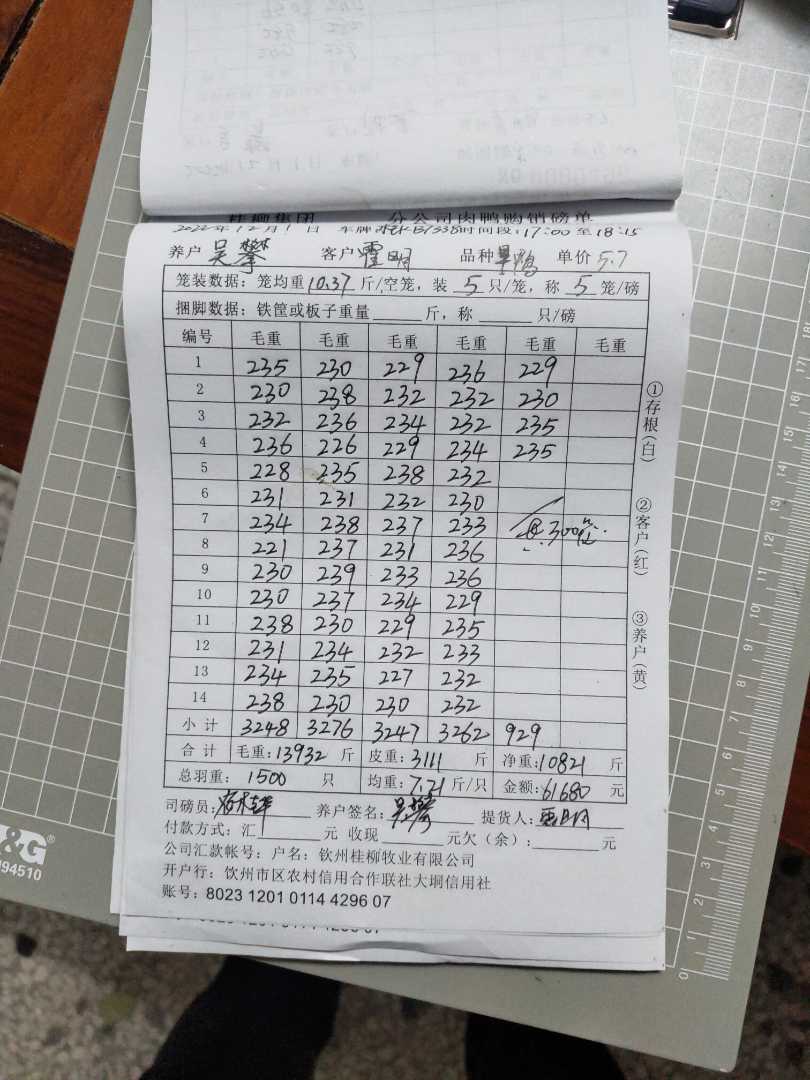 桂柳集团 分公司肉鸭购销磅单
2022年12月1日 车牌 B7338 时间段:17:00至18:15
养户 吴攀 客户 霍明 品种 旱鸭 单价 5.7
笼装数据：笼均重10.37斤/空笼，装 5 只/笼，称 5 笼/磅
捆脚数据：铁筐或板子重量 斤，称 只/磅
编号 毛重 毛重 毛重 毛重 毛重 毛重
1 235 230 229 236 229
2 230 238 232 232 230
3 232 236 234 232 235
4 236 226 229 234 235
5 228 235 238 232
6 231 231 232 230
7 234 238 237 233 300笼
8 221 237 231 236
9 230 239 233 236
10 230 237 234 229
11 238 230 229 235
12 231 234 232 233
13 234 235 227 232
14 238 230 230 232
小计 3248 3276 3247 3262 929
合计 毛重:13932 斤 皮重:3111 斤 净重:10821 斤
总羽重： 1500 只 均重:7.21斤/只 金额:61680 元
司磅员: 养户签名:吴攀 提货人:霍明
付款方式：汇 元 收现 元欠（余）: 元
公司汇款帐号：户名：钦州桂柳牧业有限公司
开户行：钦州市区农村信用合作联社大垌信用社
账号：8023 1201 0114 4296 07
①存根(白)
②客户(红)
③养户(黄)
&G
94510
0 1 2 3 4 5 6 7 8 9 10 11 12 13 14 15 16 17 18